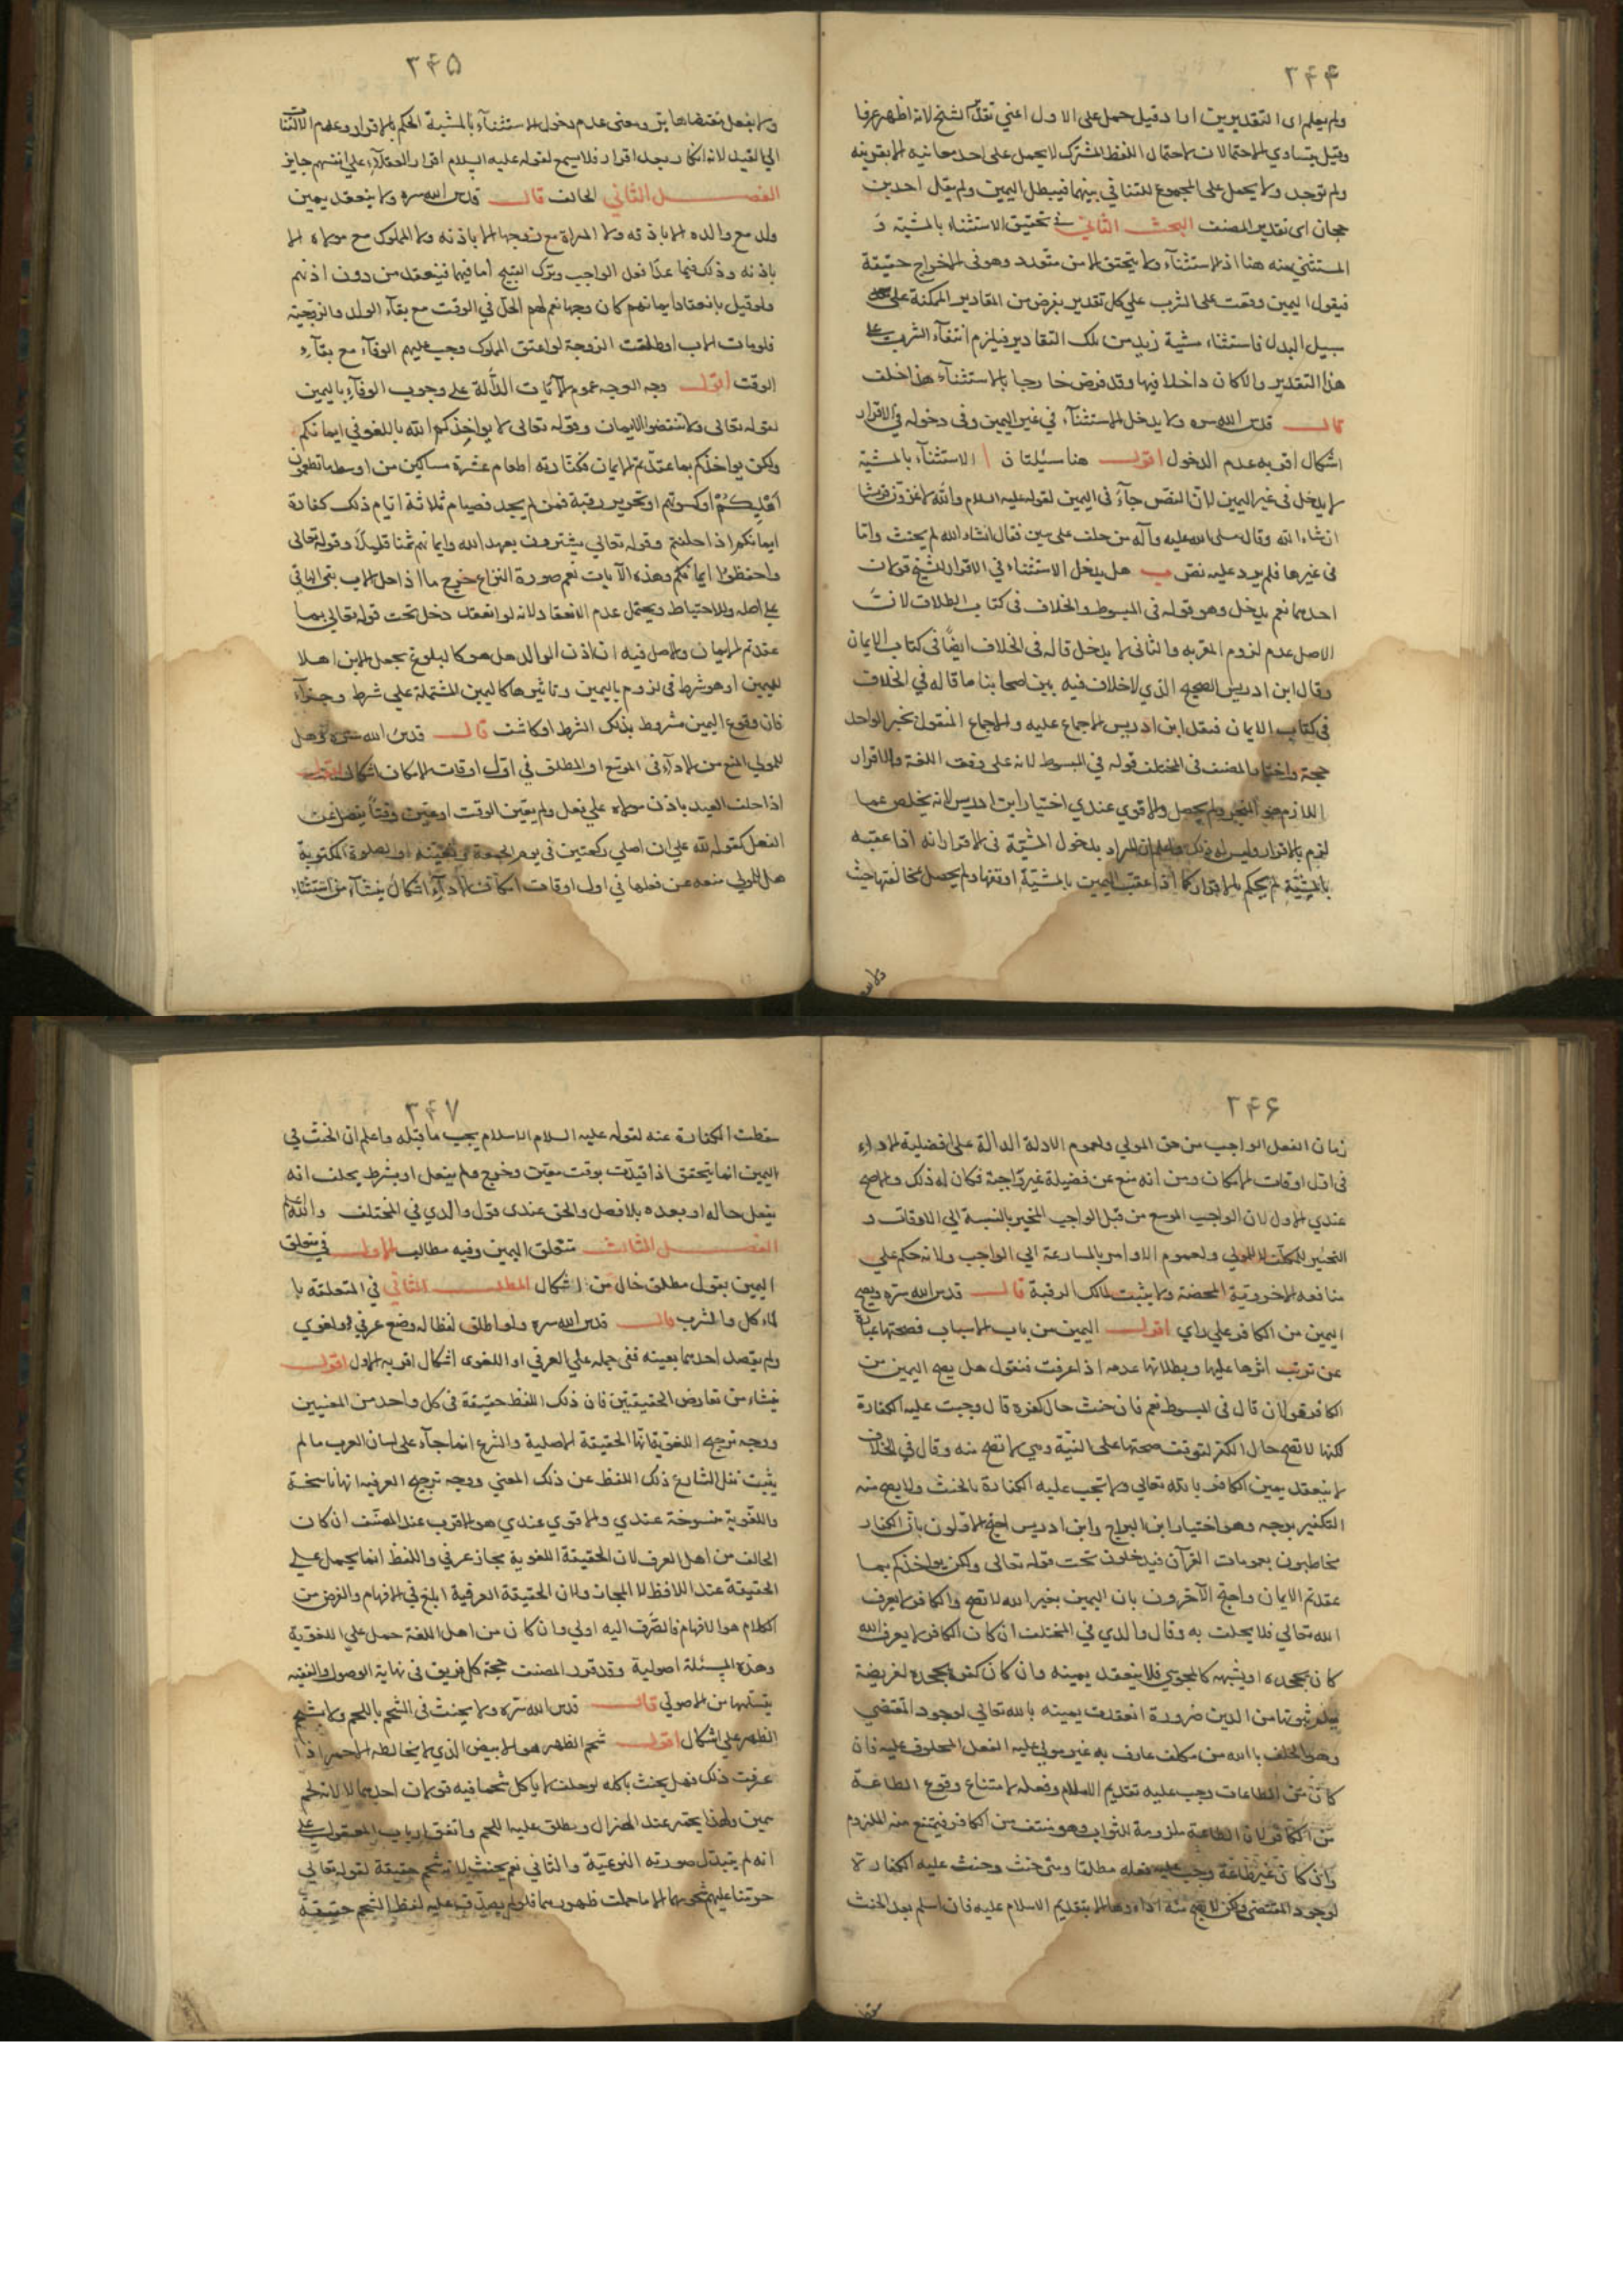 ۲۴۴
ولم يعلم اى التقديرين اراد قيل حمل على الاول اعني تقدير الشيخ لانه اظهر عرفا
وقيل بتساوي الاحتمالات لاحتمال اللفظ المشترك لا يحمل على احد معانيه الا بقرينة
ولم توجد ولا يحمل على المجموع للتنافي بينهما فيبطل اليمين ولم يقل احد بن
حجان اى تقدير المصنف البحث الثاني في تحقيق الاستثناء بالمشية و
المستثنى منه هنا اذ الاستثناء ولا يتحقق الا من متعدد وهو في الاخراج حقيقة
فيقول اليمين وقعت على الشرب علي كل تقدير بفرض من المقادير الممكنة على
سبيل البدل فاستثناء مشية زيد من تلك التقادير فيلزم انتفاء الشرب على
هذا التقدير والا كان داخلا فيها وقد فرض خارجا بالاستثناء هذا خلف
قال قدس الله سره ولا يدخل الاستثناء في غير اليمين وفى دخوله في الاقرار
اشكال اقربه عدم الدخول اقول هنا مسئلتان ا الاستثناء بالمشية
لا يدخل فى غير اليمين لان النص جاء في اليمين لقوله عليه السلام والله لاغزون قريشا
انشاء الله وقال صلى الله عليه وآله من حلف على يمين فقال انشاء الله لم يحنث واما
فى غيرها فلم يرد عليه نص ب هل يدخل الاستثناء في الاقرار للشيخ قولان
احدهما نعم يدخل وهو قوله فى المبسوط والخلاف فى كتاب الطلاق لان
الاصل عدم لزوم المقر به والثانى لا يدخل قاله فى الخلاف ايضًا في كتاب الايمان
وقال ابن ادريس الصحيح الذي لا خلاف فيه بين اصحابنا ما قاله في الخلاف
فى كتاب الايمان فنقل ابن ادريس الاجماع عليه والاجماع المنقول بخبر الواحد
حجة واختار المصنف فى المختلف قوله في المبسوط لانه على وفق اللغة والاقرار
اللازم هو المنجز ولم يحصل والاقوي عندي اختيار ابن ادريس لانه يخلص عما
لزم بالاقرار وليس له ذلك واعلم ان المراد بدخول المشية فى الاقرار انه اذا عقبه
بالمشيّة لم يحكم بالاقرار كما اذا عقب اليمين بالمشيّة اوقفها ولم يحصل مخالفتها حيث
ولا
۲۴۵
ولا يفعل مقتضاها بين ومعنى عدم دخول الاستثناء بالمشية الحكم بالاقرار وعدم الالتفات
الى القيد لانه انكار بعد اقرار فلا يسمع لقوله عليه السلام اقرار العقلاء على انفسهم جايز
الفصل الثاني الحالف قال قدس الله سره ولا ينعقد يمين
ولد مع والده الا باذنه ولا المراة مع زوجها الا باذنه ولا المملوك مع مولاه الا
باذنه وذلك فيما عدا فعل الواجب وترك القبيح اما فيهما فينعقد من دون اذنهم
ولو قيل بانعقاد ايمانهم كان وجها نعم لهم الحل في الوقت مع بقاء الولد والزوجية
فلو مات الاب او طلقت الزوجة او اعتق المملوك وجب عليهم الوفاء مع بقاء
الوقت اقول وجه الوجه عموم الآيات الدالة على وجوب الوفاء باليمين
لقوله تعالى ولا تنقضوا الايمان وبقوله تعالى لا يواخذكم الله باللغو في ايمانكم
ولكن يواخذكم بما عقدتم الايمان فكفارته اطعام عشرة مساكين من اوسط ما تطعمون
اهليكم او كسوتهم او تحرير رقبة فمن لم يجد فصيام ثلاثة ايام ذلك كفارة
ايمانكم اذا حلفتم وقوله تعالي يشترون بعهد الله وايمانهم ثمنا قليلا وقوله تعالى
واحفظوا ايمانكم وهذه الآيات تعم صورة النزاع خرج ما اذا حل الاب بقى الباقي
على اصله وللاحتياط ويحتمل عدم الانعقاد لانه لو انعقد دخل تحت قوله تعالى بما
عقدتم الايمان والاصل فيه ان اذن الوالد هل هو كالبلوغ بجعل الابن اهلا
لليمين او هو شرط فى لزوم باليمين وتاثيرها كاليمين المشتملة علي شرط وجزآء
فان وقوع اليمين مشروط بذلك الشرط او كاشف قال قدس الله سره وهل
للمولي المنع من الاداء فى الموسع او المطلق في اول اوقات الامكان اشكال اقول
اذا حلف العبد باذن مولاه علي فعل ولم يعين الوقت او عين وقتًا يفضل عن
الفعل كقوله لله علي ان اصلي ركعتين فى يوم الجمعة او الصلوة المكتوبة
هل للمولى منعه عن فعلها في اول اوقات امكان الاداء اشكال ينشأ من استثناء
۲۴۶
زمان الفعل الواجب من حق المولي ولعموم الادلة الدالة على افضلية الاداء
فى اول اوقات الامكان ومن انه منع عن فضيلة غير واجبة فكان له ذلك والاصح
عندي الاول لان الواجب الموسع من قبل الواجب المخير بالنسبة الى الاوقات و
التخيير للمكلف لا للمولي ولعموم الاوامر بالمسارعة الي الواجب ولانه حكم علي
منافعه الاخروية المحضة ولا يثبت لمالك الرقبة قال قدس الله سره ويصح
اليمين من الكافر علي راي اقول اليمين من باب الاسباب فصحتها عبارة
عن ترتب اثرها عليها وبطلانها عدمه اذا عرفت فنقول هل يصح اليمين من
الكافر قولان قال في المبسوط نعم فان حنث حال كفره قال وجبت عليه الكفارة
لكنها لا تصح حال الكفر لتوقف صحتها على النيّة وهي لا تصح منه وقال في الخلاف
لا ينعقد يمين الكافر بالله تعالى ولا تجب عليه الكفارة بالحنث ولا يصح منه
التكفير بوجه وهو اختيار ابن البراج وابن ادريس احتج الاولون بان الكفار
مخاطبون بعمومات القرآن فيدخلون تحت قوله تعالى ولكن يواخذكم بما
عقدتم الايمان واحتج الآخرون بان اليمين بغير الله لا تصح والكافر لا يعرف
الله تعالي فلا يحلف به وقال والدي في المختلف ان كان الكافر لا يعرف الله
كان يجحده او يشبهه كالمجوسى فلا ينعقد يمينه وان كان كفره بجحده لفريضة
يعلم ثبوتها من الدين ضرورة انعقدت يمينه بالله تعالي لوجود المقتضي
وهو الحلف بالله من مكلف عارف به غير مولى عليه الفعل المحلوف عليه فان
كان من الطاعات وجب عليه تقديم الاسلام وفعله لامتناع وقوع الطاعة
من الكافر لان الطاعة ملزومة للثواب وهو منتف من الكافر فيمتنع منه الملزوم
وان كان غير طاعة وجب عليه فعله مطلقا ومتى حنث وجبت عليه الكفارة
لوجود المقتضي ولكن لا يصح منه اداءها الا بتقديم الاسلام عليه فان اسلم بعد الحنث
سقطت
۲۴۷
سقطت الكفارة عنه لقوله عليه السلام الاسلام يجب ما قبله واعلم ان الحنث في
اليمين انما يتحقق اذا قيدت بوقت معين وخرج ولم يفعل او بشرط يحلف انه
يفعل حاله او بعده بلا فصل والحق عندى قول والدي في المختلف والله اعلم
الفصل الثالث متعلق اليمين وفيه مطالب الاول في متعلق
اليمين بقول مطلق خال من اشكال المطلب الثاني في المتعلقة با
لماكل والمشرب قال قدس الله سره ولو اطلق لفظا له وضع عرفي ولغوي
ولم يقصد احدهما بعينه ففى حمله علي العرفي او اللغوى اشكال اقربه الاول اقول
ينشاء من تعارض الحقيقتين فان ذلك اللفظ حقيقة فى كل واحد من المعنيين
ووجه ترجيح اللغوي فانها الحقيقة الاصلية والشرع انما جاء على لسان العرب ما لم
يثبت نقل الشارع ذلك اللفظ عن ذلك المعني ووجه ترجيح العرفية انها ناسخة
واللغوية منسوخة عندي والاقوي عندي هو الاقرب عند المصنف ان كان
الحالف من اهل العرف لان الحقيقة اللغوية مجاز عرفي واللفظ انما يحمل على
الحقيقة عند اللافظ لا المجاز ولان الحقيقة العرفية ابلغ في الافهام والغرض من
الكلام هو الافهام فالصرف اليه اولي وان كان من اهل اللغة حمل على اللغوية
وهذه المسئلة اصولية وقد قرر المصنف حجة كل فريق فى نهاية الوصول والفقيه
يتسلمها من الاصولي قال قدس الله سره ولا يحنث فى الشحم باللحم ولا بشحم
الظهر علي اشكال اقول شحم الظهر هو الابيض الذي لا يخالطه الاحمر اذا
عرفت ذلك فهل يحنث باكله لو حلف لا ياكل شحما فيه قولان احدهما لا لانه لحم
سمين ولهذا يحمر عند الهزال ويطلق عليه اللحم واتفق ارباب المعقول على
انه لم يتبدل صورته النوعيّة والثاني نعم يحنث لانه شحم حقيقة لقوله تعالي
حرمنا عليهم شحومهما الا ما حملت ظهورهما فلو لم يصدق عليه لفظ الشحم حقيقة